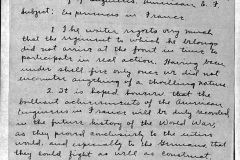 of Engineers, American E. F.
Subject: Experiences in France
1 The writer regrets very much
that the regiment to which he belongs
did not arrive at the front in time to
participate in real action. Having been
under shell fire only once we did not
encounter anything of a thrilling nature
2. It is hoped however that the
brilliant achievements of the American
Engineers in France will be duly recorded
in the future history of the World War,
as they proved conclusively to the entire
world, and especially to the Germans that
they could fight as well as construct